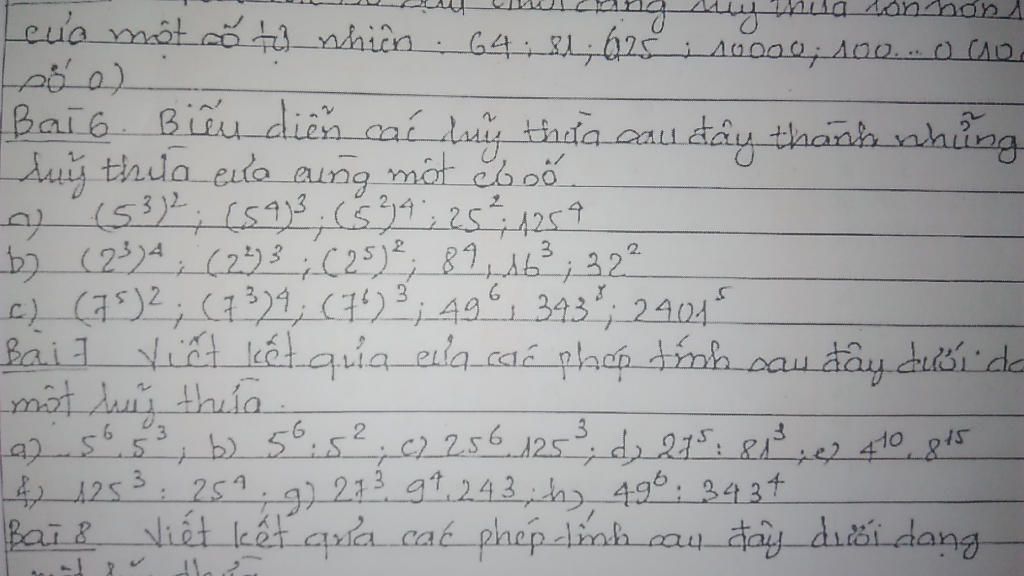 dạng luỹ thừa lớn hơn 1
của một số tự nhiên : 64 ; 81 ; 625 ; 10000 ; 100...0 (10
số 0)
Bài 6. Biểu diễn các luỹ thừa sau đây thành những
luỹ thừa của cùng một cơ số.
a) (5³)² ; (5⁴)³ ; (5²)⁴ ; 25² ; 125⁴
b) (2³)⁴ ; (2²)³ ; (2⁵)² ; 8⁴ , 16³ ; 32²
c) (7⁵)² ; (7³)⁴ ; (7⁶)³ ; 49⁶ ; 343⁸ ; 2401⁵
Bài 7 Viết kết quả của các phép tính sau đây dưới
một luỹ thừa.
a) 5⁶.5³ ; b) 5⁶:5² ; c) 25⁶.125³ ; d) 27⁵:81³ ; e) 4¹⁰.8¹⁵
f) 125³:25⁴ ; g) 27³.9⁴.243 ; h) 49⁶:343⁴
Bài 8 Viết kết quả các phép tính sau đây dưới dạng